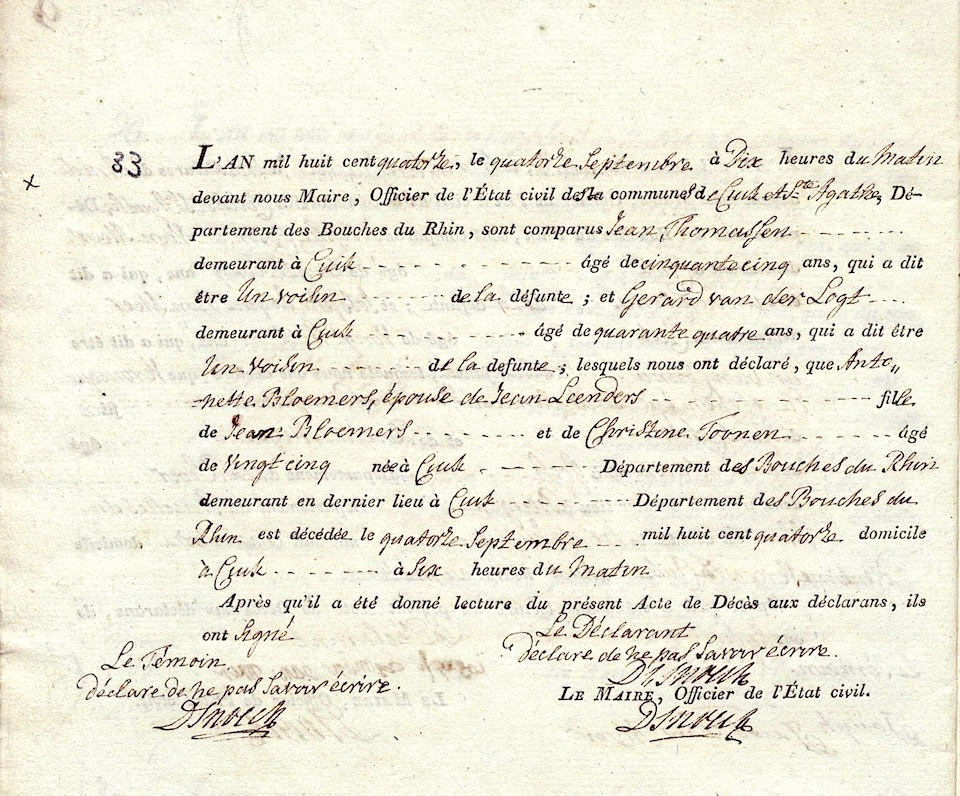 83 L'AN mil huit cent quatorze, le quatorze Septembre à Dix heures du Matin
x devant nous Maire, Officier de l'État civil des la communes de Cuik et Ste Agathe, Dé-
partement des Bouches du Rhin, sont comparus Jean Thomassen
demeurant à Cuik âgé de cinquante cinq ans, qui a dit
être Un voisin de la défunte; et Gerard van der Logt
demeurant à Cuik âgé de quarante quatre ans, qui a dit être
Un voisin de la defunte; lesquels nous ont déclaré, que Anto„
nette Bloemers, épouse de Jean Leenders fille
de Jean Bloemers et de Christine Toonen âgé
de Vingt cinq née à Cuik Département des Bouches du Rhin
demeurant en dernier lieu à Cuik Département des Bouches du
Rhin est décédée le quatorze Septembre mil huit cent quatorze domicile
à Cuik à Six heures du Matin
Après qu'il a été donné lecture du présent Acte de Décès aux déclarans, ils
ont Signé
Le Témoin
déclare de ne pas Savoir écrire.
DSnoeck
Le Déclarant
déclare de ne pas Savoir écrire.
DSnoeck
LE MAIRE, Officier de l'État civil.
DSnoeck